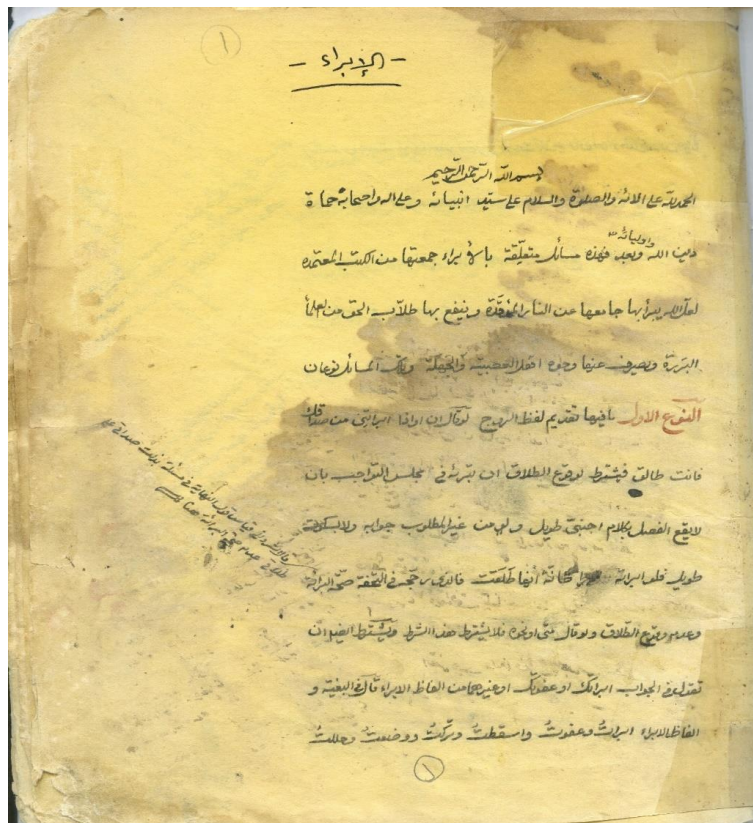 ١
- الإبراء -
بسم الله الرحمن الرحيم
الحمد لله على الائه والصلوة والسلام على سيد انبيائه وعلى اله واصحابه حماة
دين الله واوليائه وبعد فهذه مسائل متعلقة بالابراء جمعتها من الكتب المعتمده
لعل الله يبرأ بها جامعها عن النار المؤقدة وينفع بها طلاب الحق من العلماء
البررة ويصرف عنها وجوه اهل العصبية والجهلة وتلك المسائل نوعان
النوع الاول ما فيها تقديم لفظ الزوج لو قال ان او اذا ابرأتنى من صداقك
فانت طالق فيشترط لوقوع الطلاق ان تبرئه فى مجلس التواجب بان
لا يقع الفصل بكلام اجنبى طويل ولو من غير المطلوب جوابه ولا بسكوت
طويل فلو ابرأته ظانة انها طلقت فالذى رجح فى التحفة صحة البرائة
وعدم وقوع الطلاق ولو قال متى او نحوه فلا يشترط هذا الشرط ويشترط ايضا ان
تقول فى الجواب ابرأتك او عفوتك او غيرهما من الفاظ الابراء قال فى البغية و
الفاظ الابراء ابرأتُ وعفوتُ واسقطتُ وتركتُ ووضعتُ وحللتُ
١